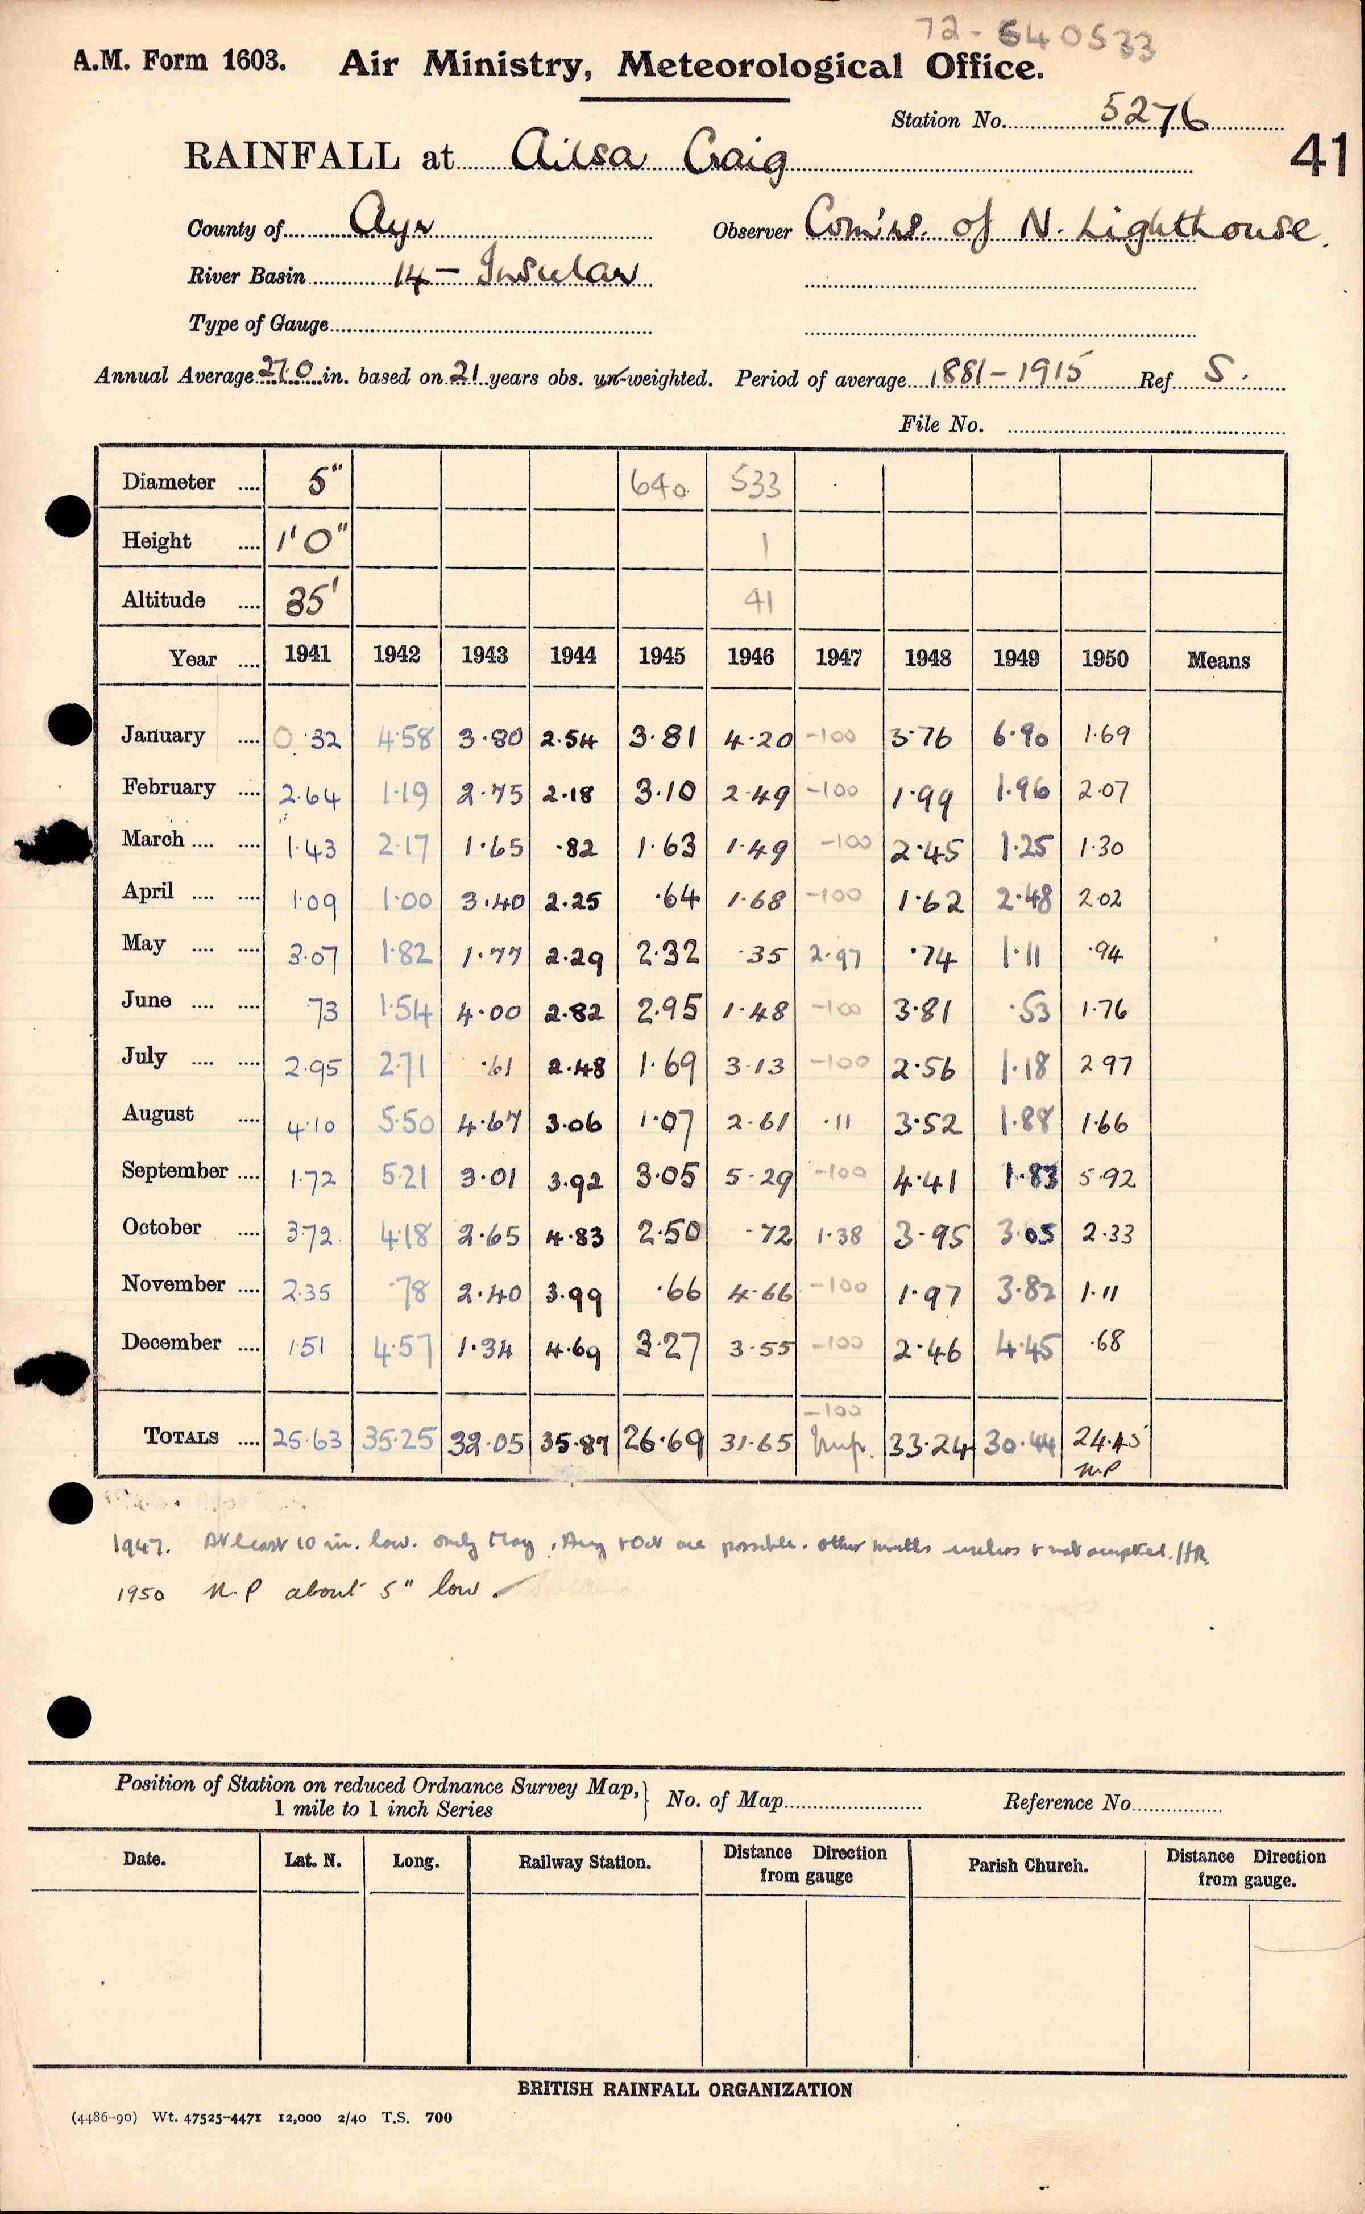 72-640533
A.M. Form 1603. Air Ministry, Meteorological Office.
Station No. 5276
41
RAINFALL at Ailsa Craig
County of Ayr Observer Com'rs. of N. Lighthouse.
River Basin 14 - Insular
Type of Gauge
Annual Average 27.0 in. based on 21 years obs. un-weighted. Period of average 1881-1915 Ref S.
File No.
Diameter .... 5" 640 533
Height .... 1'0" 1
Altitude .... 35' 41
Year .... 1941 1942 1943 1944 1945 1946 1947 1948 1949 1950 Means
January .... 0.32 4.58 3.80 2.54 3.81 4.20 -100 3.76 6.90 1.69
February .... 2.64 1.19 2.75 2.18 3.10 2.49 -100 1.99 1.96 2.07
March .... .... 1.43 2.17 1.65 .82 1.63 1.49 -100 2.45 1.25 1.30
April .... .... 1.09 1.00 3.40 2.25 .64 1.68 -100 1.62 2.48 2.02
May .... .... 3.07 1.82 1.77 2.29 2.32 .35 2.97 .74 1.11 .94
June .... .... .73 1.54 4.00 2.82 2.95 1.48 -100 3.81 .53 1.76
July .... .... 2.95 2.71 .61 2.48 1.69 3.13 -100 2.56 1.18 2.97
August .... 4.10 5.50 4.67 3.06 1.07 2.61 .11 3.52 1.88 1.66
September .... 1.72 5.21 3.01 3.92 3.05 5.29 -100 4.41 1.83 5.92
October .... 3.72 4.18 2.65 4.83 2.50 .72 1.38 3.95 3.05 2.33
November .... 2.35 .78 2.40 3.99 .66 4.66 -100 1.97 3.82 1.11
December .... 1.51 4.57 1.34 4.69 3.27 3.55 -100 2.46 4.45 .68
-100
TOTALS .... 25.63 35.25 32.05 35.87 26.69 31.65 33.24 30.44 24.45
N.P
1947. At least 10 in. low. only May, Aug & Oct are possible. other months useless & not accepted.
1950 N.P about 5" low
Position of Station on reduced Ordnance Survey Map,
1 mile to 1 inch Series
No. of Map Reference No
Date. Lat. N. Long. Railway Station. Distance Direction from gauge Parish Church. Distance Direction from gauge.
BRITISH RAINFALL ORGANIZATION
(4486-90) Wt. 47525-4471 12,000 2/40 T.S. 700